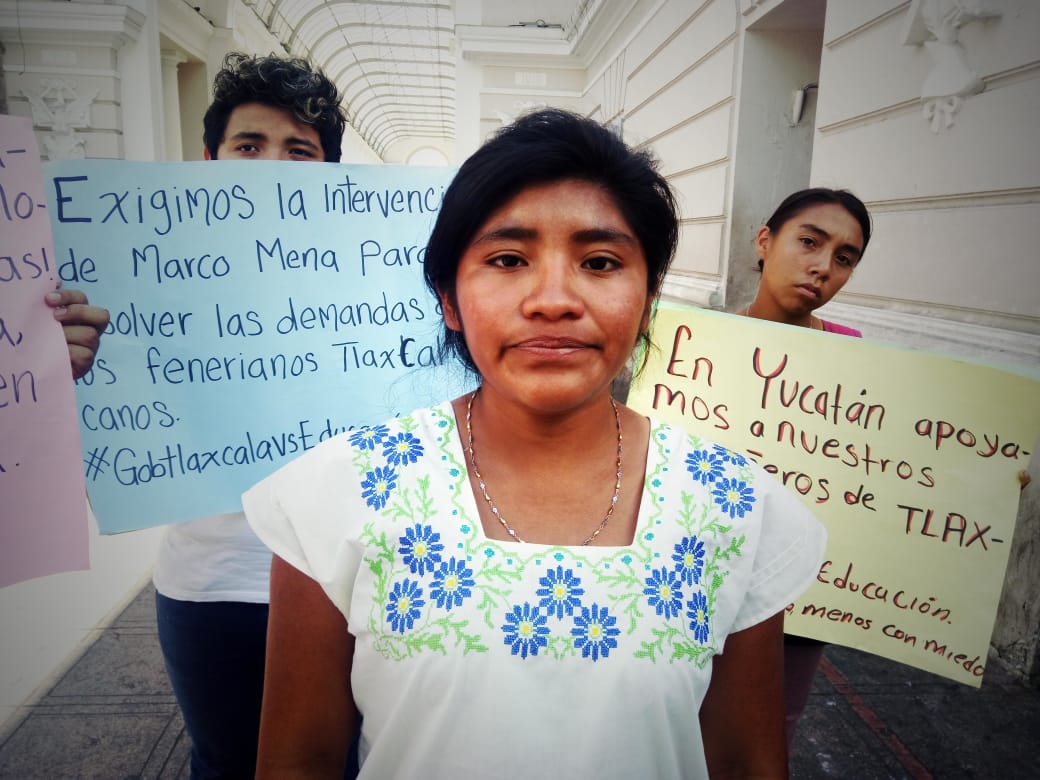 lo-
as!
a,
en
Exigimos la Intervenci
de Marco Mena Para
solver las demandas
os fenerianos Tlaxcal
canos.
#GobtlaxcalavsEduca
En Yucatán apoya-
mos a nuestros
eros de TLAX-
Educación.
menos con miedo